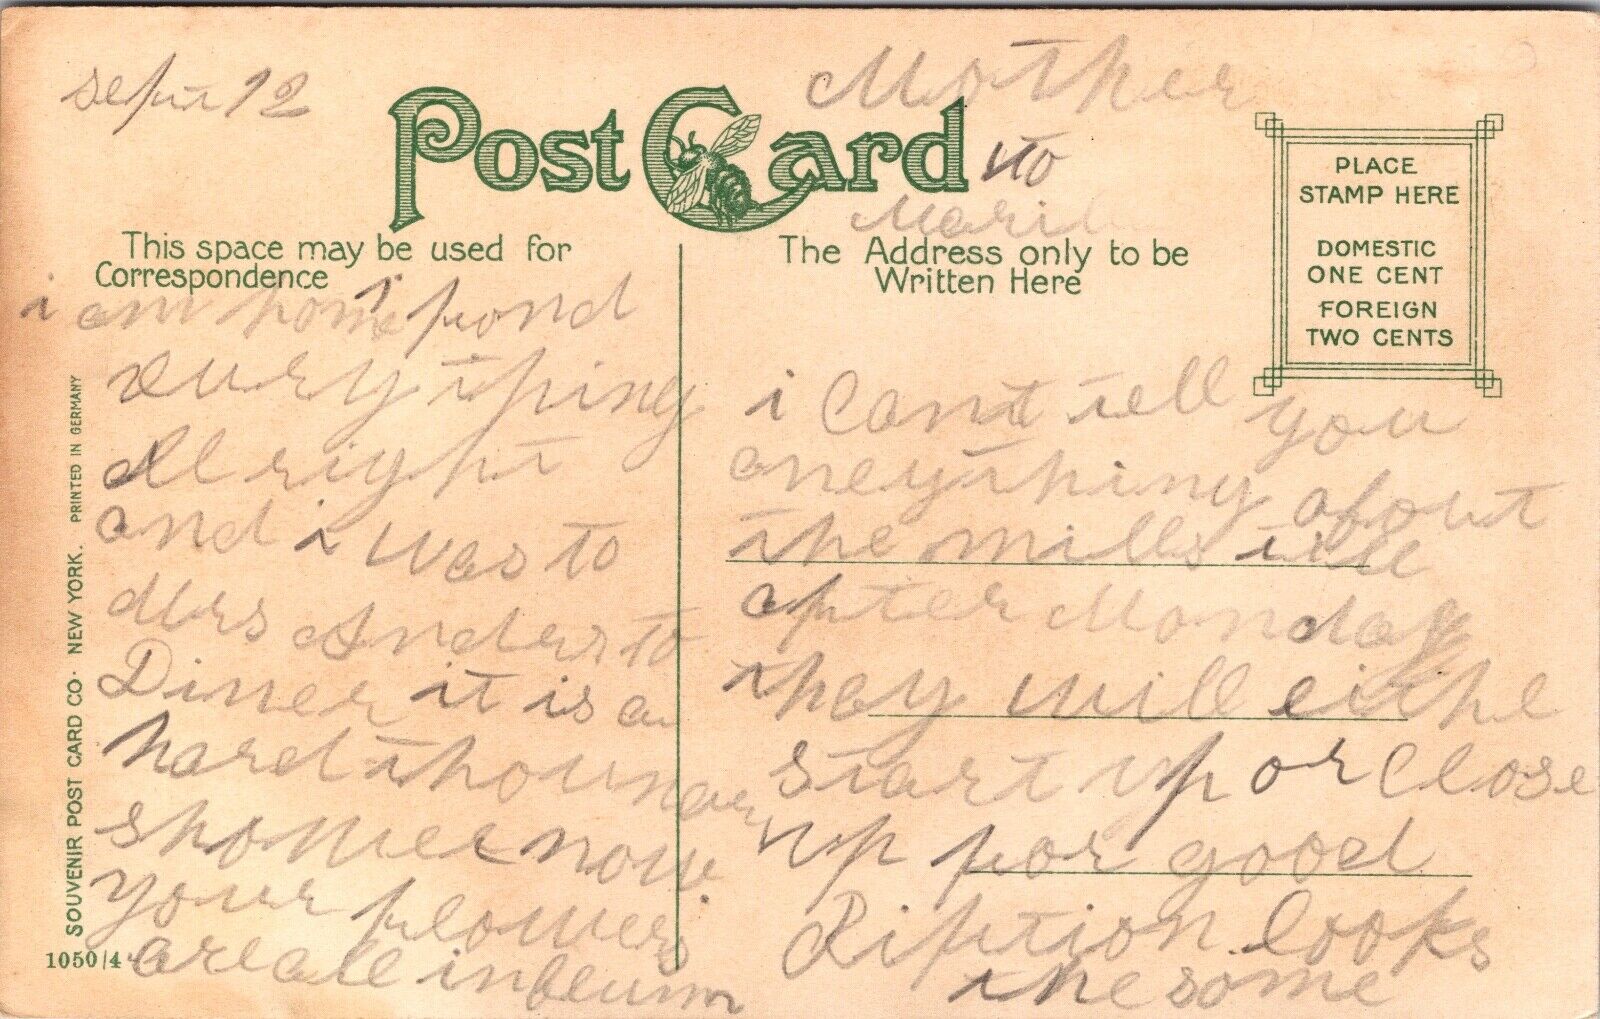 sept 12
Mother
to
Mari
Post Card
PLACE
STAMP HERE
DOMESTIC
ONE CENT
FOREIGN
TWO CENTS
This space may be used for
Correspondence
The Address only to be
Written Here
i am home i fond
every thing
Alright
and i was to
Mrs Anders to
Diner it is a
hard thounder
shower now
your flowers
are all in bloum
i Cant tell you
aneything about
the mills till
after Monday
they will eithe
start up or Close
up for good
Rifton looks
the some
SOUVENIR POST CARD CO. NEW YORK. PRINTED IN GERMANY
1050/4